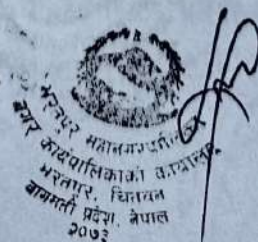 भरतपुर महानगरपालिका
नगर कार्यपालिकाको कार्यालय
भरतपुर, चितवन
बागमती प्रदेश, नेपाल
२०७३